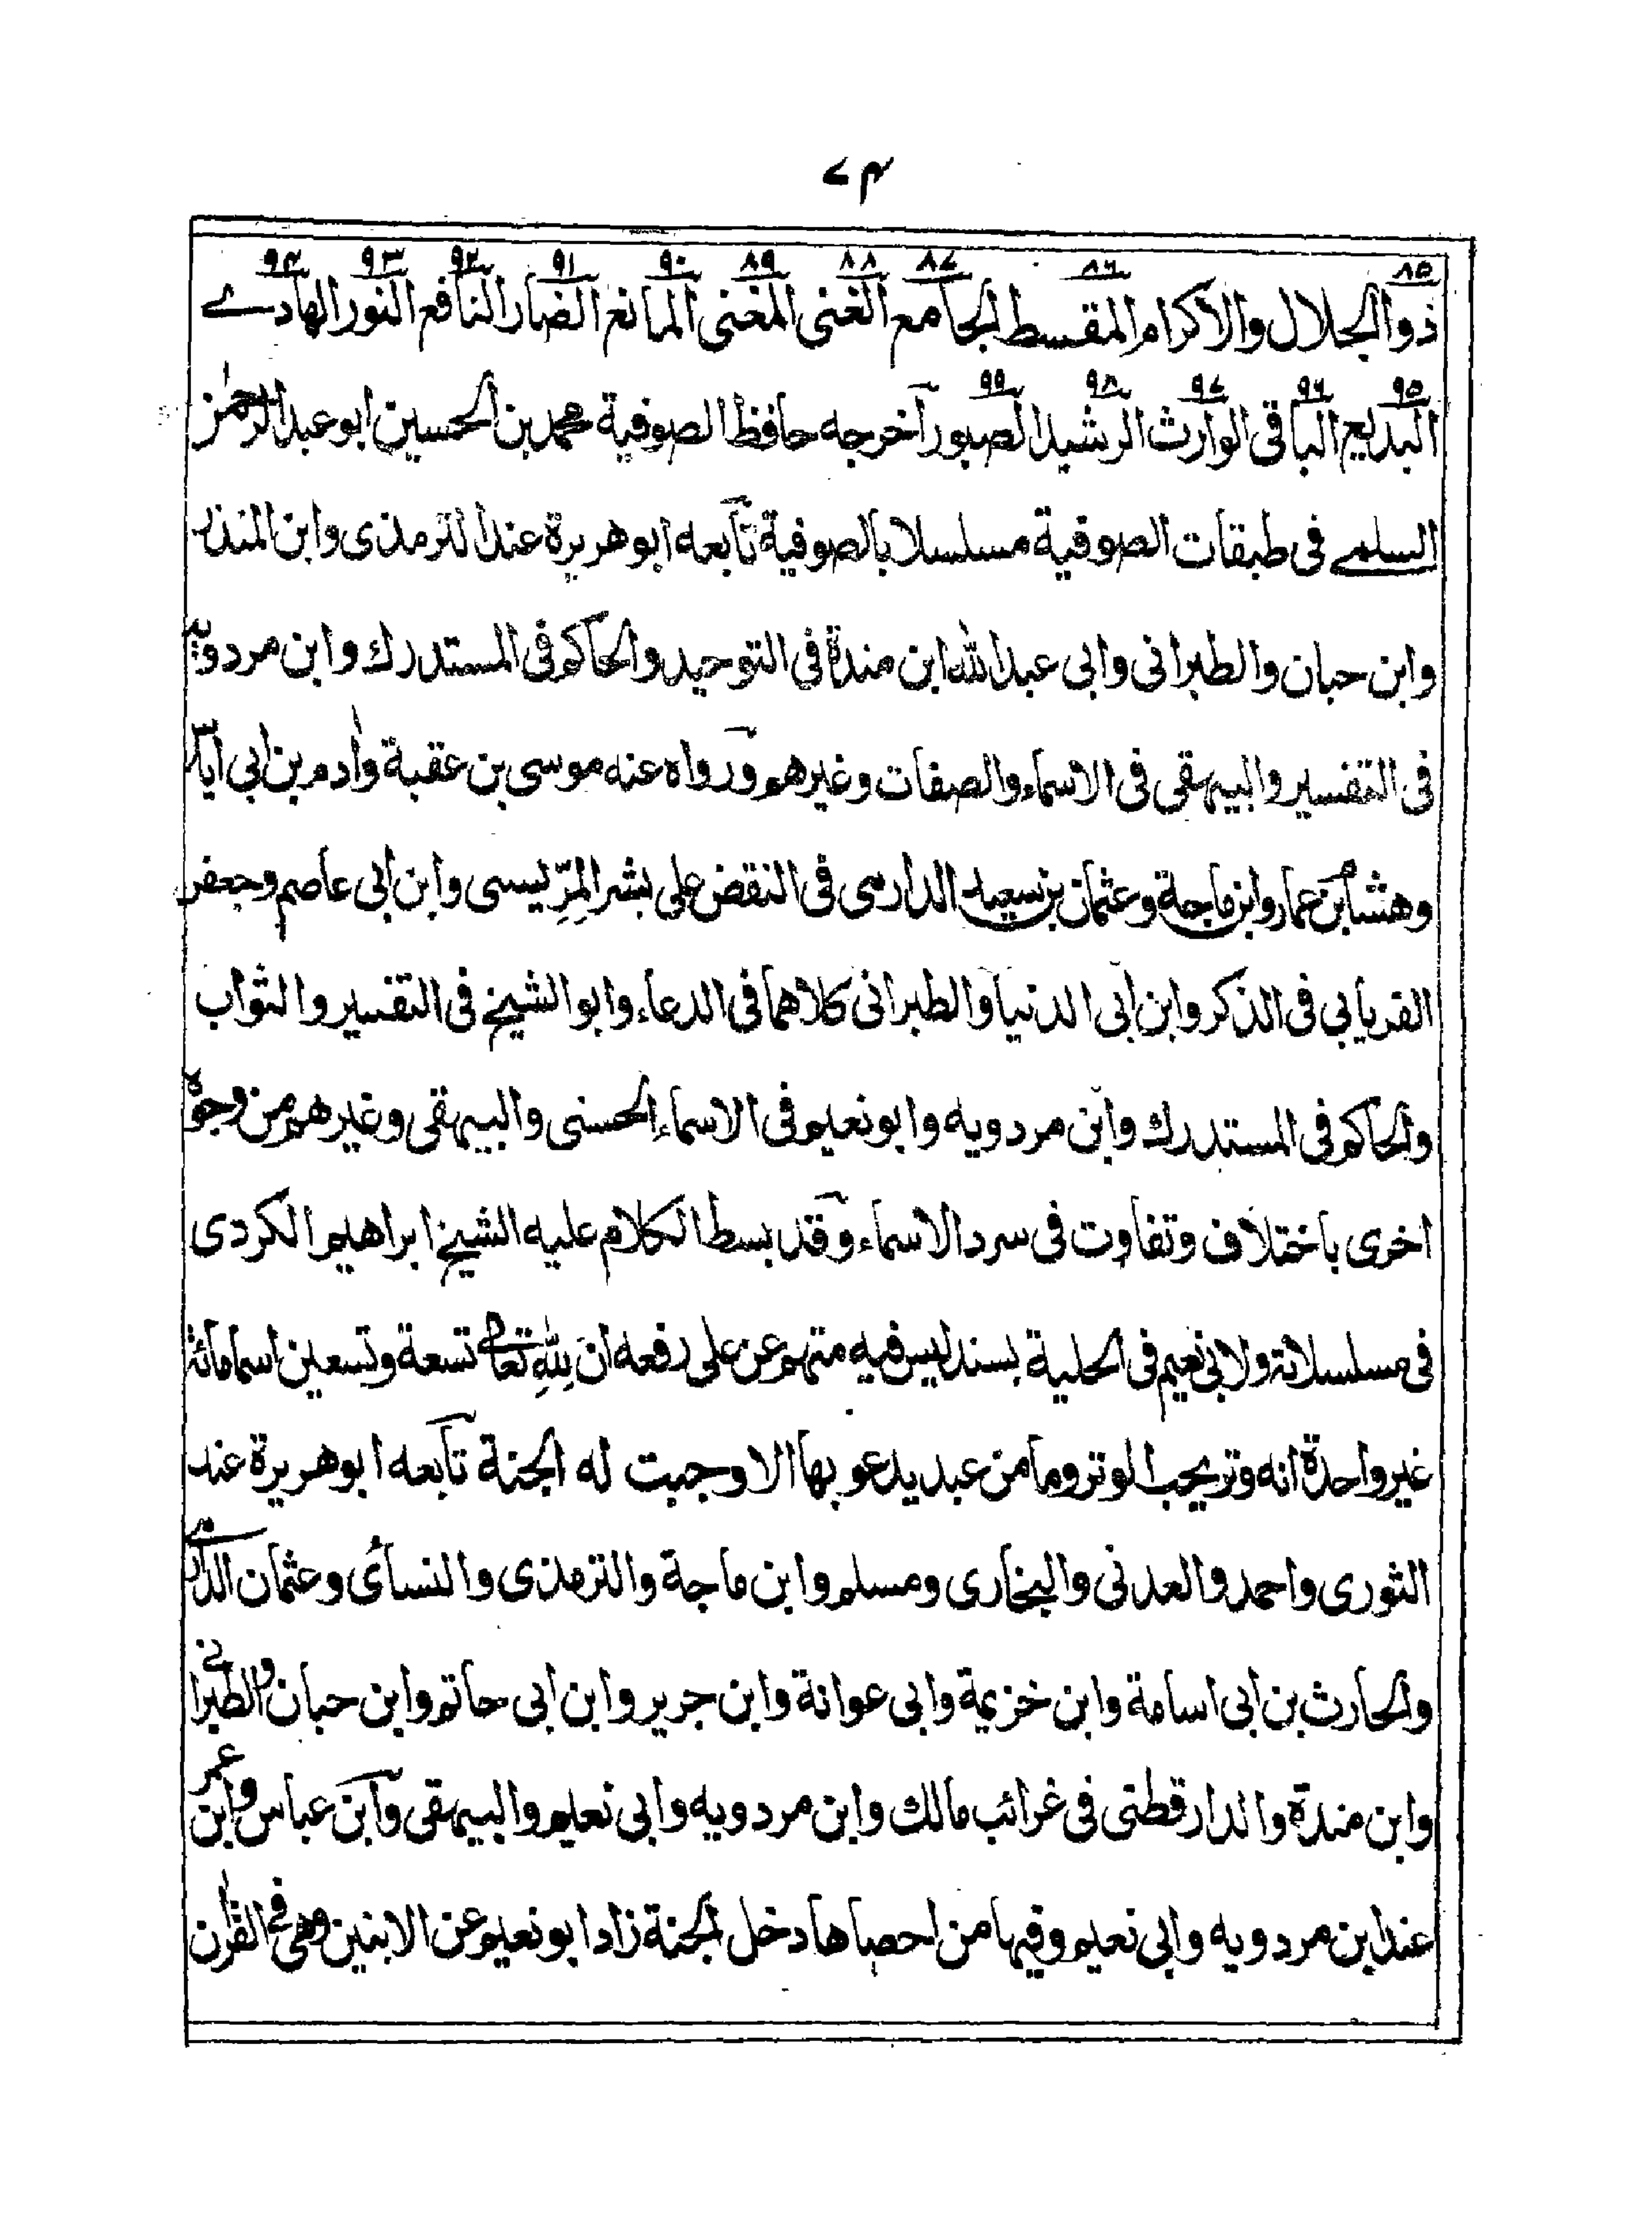 ۷۴
۸۵ ۸۶ ۸۷ ۸۸ ۸۹ ۹۰ ۹۱ ۹۲ ۹۳ ۹۴
ذوالجلال والاكرام المقسط الجامع الغنى المغنى المانع الضار النافع النور الهادے
۹۵ ۹۶ ۹۷ ۹۸ ۹۹
البديع الباقى الوارث الرشيد الصبور آخرجه حافظ الصوفية محمد بن الحسين ابو عبد الرحمٰن
السلمے فى طبقات الصوفية مسلسلا بالصوفية تابعه ابو هريرة عند الترمذى وابن المنذر
وابن حبان والطبرانى وابى عبد الله ابن مندة فى التوحيد والحاكم فى المستدرك وابن مردويه
فى التفسير والبيهقى فى الاسماء والصفات وغيرهم ورواه عنه موسى بن عقبة واٰدم بن ابى اياس
وهشام بن عمار وابن ماجة وعثمان بن سعيد الدارمى فى النقض على بشر المِرِّيسى وابن ابى عاصم وجعفر
الفريابى فى الذكر وابن ابى الدنيا والطبرانى كلاهما فى الدعاء وابو الشيخ فى التفسير والثواب
والحاكم فى المستدرك وابن مردويه وابو نعيم فى الاسماء الحسنى والبيهقى وغيرهم من وجوه
اخرى باختلاف وتفاوت فى سرد الاسماء وقد بسط الكلام عليه الشيخ ابراهيم الكردى
فى مسلسلاته ولابى نعيم فى الحلية بسند ليس فيه متهم عن على رفعه ان لِلّٰهِ تعالى تسعة وتسعين اسما مائة
غير واحدة انه وتر يحب الوتر وما من عبد يدعو بها الا وجبت له الجنة تابعه ابو هريرة عند
الثورى واحمد والعدنى والبخارى ومسلم وابن ماجة والترمذى والنسائى وعثمان الدارمى
والحارث بن ابى اسامة وابن خزيمة وابى عوانة وابن جرير وابن ابى حاتم وابن حبان والطبرانے
وابن مندة والدارقطنى فى غرائب مالك وابن مردويه وابى نعيم والبيهقى وابن عباس وابن عمر
عند ابن مردويه وابى نعيم وفيها من احصاها دخل الجنة زاد ابو نعيم عن الابنين وهى فے القراٰن